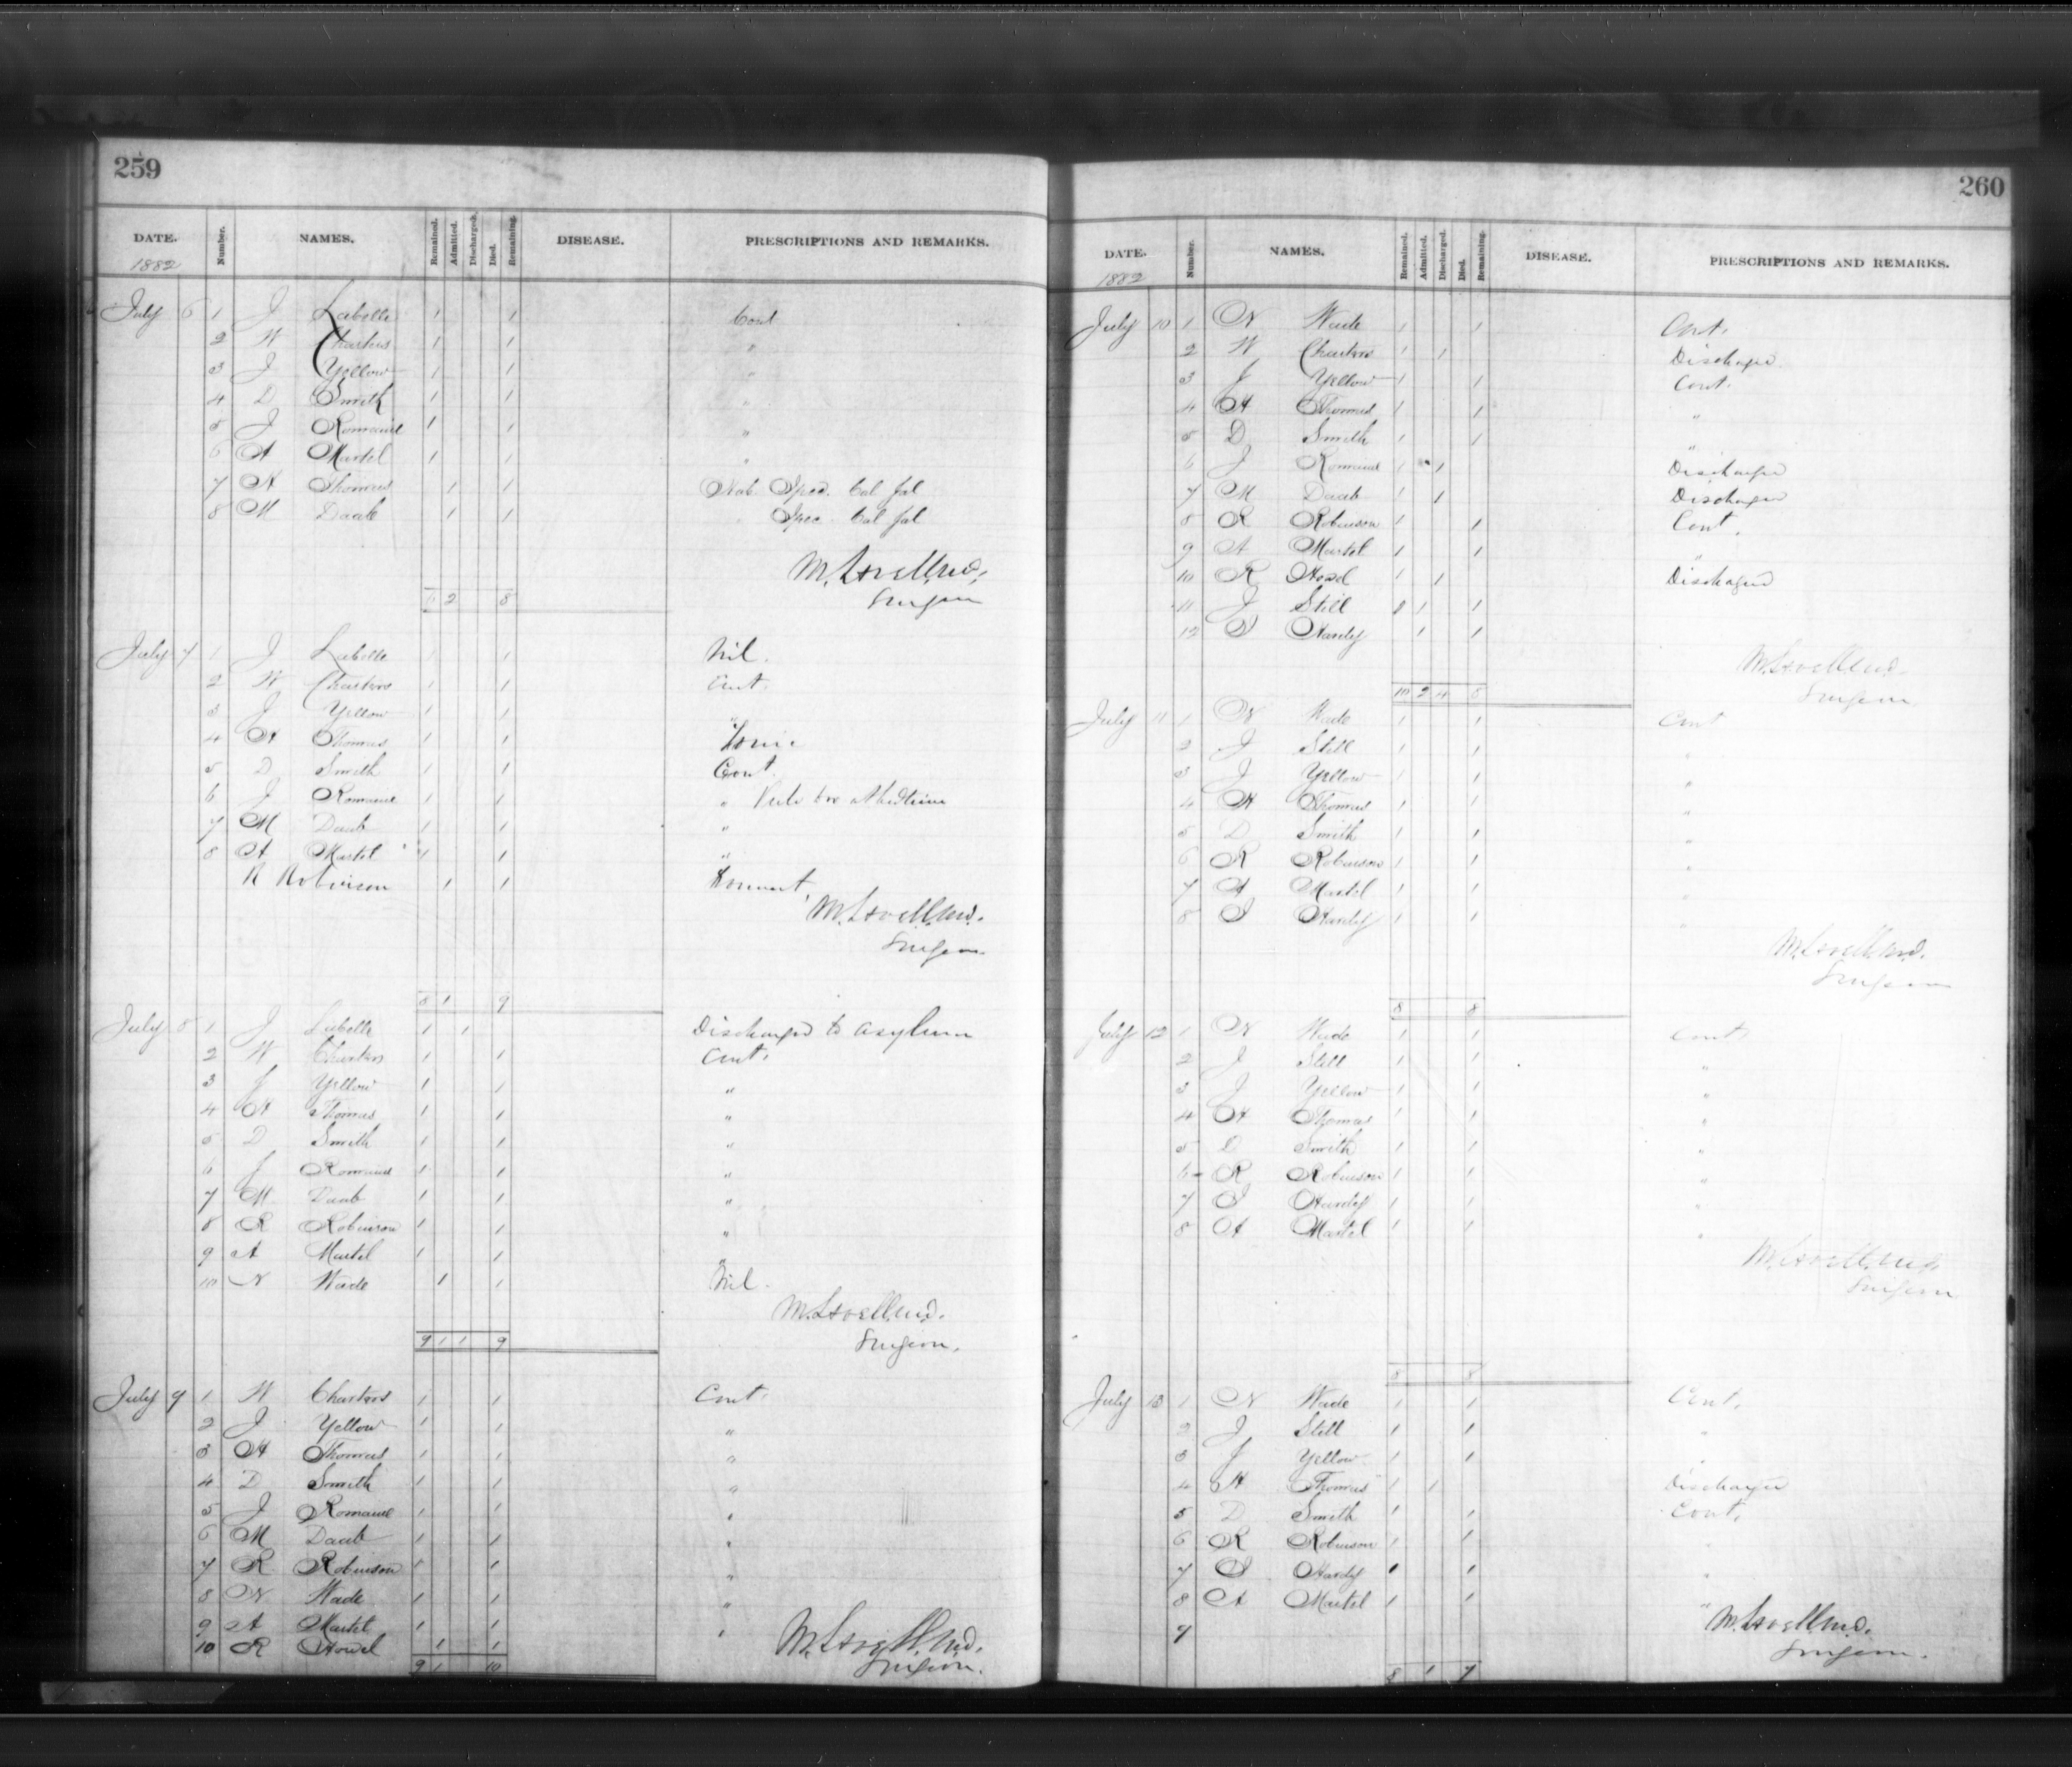 259
DATE. Number. NAMES. Remained. Admitted. Discharged. Died. Remaining. DISEASE. PRESCRIPTIONS AND REMARKS.
1882
July 6 1 J Labelle 1 1 Cont
2 W Charters 1 1 "
3 J Yellow 1 1 "
4 D Smith 1 1 "
5 J Romaine 1 1 "
6 A Martel 1 1 "
7 A Thomas 1 1 Spec. Cal Jal
8 M Daab 1 1 Spec. Cal Jal
Surgeon
6 2 8
July 7 1 J Labelle 1 1 Nil.
2 W Charters 1 1 Cont.
3 J Yellow 1 1 "
4 A Thomas 1 1 Tonic
5 D Smith 1 1 Cont.
6 J Romaine 1 1 "
7 M Daab 1 1 "
8 A Martel 1 1 "
R Robinson 1 1
Surgeon
8 1 9
July 8 1 J Labelle 1 1 Discharged to asylum
2 W Charters 1 1 Cont.
3 J Yellow 1 1 "
4 A Thomas 1 1 "
5 D Smith 1 1 "
6 J Romaine 1 1 "
7 M Daab 1 1 "
8 R Robinson 1 1 "
9 A Martel 1 1 "
10 N Wade 1 1 Nil.
Surgeon.
9 1 1 9
July 9 1 W Charters 1 1 Cont.
2 J Yellow 1 1 "
3 A Thomas 1 1 "
4 D Smith 1 1 "
5 J Romaine 1 1 "
6 M Daab 1 1 "
7 R Robinson 1 1 "
8 N Wade 1 1 "
9 A Martel 1 1 "
10 R Howel 1 1
Surgeon.
9 1 10
260
DATE. Number. NAMES. Remained. Admitted. Discharged. Died. Remaining. DISEASE. PRESCRIPTIONS AND REMARKS.
1882
July 10 1 N Wade 1 1 Cont.
2 W Charters 1 1 Discharged
3 J Yellow 1 1 Cont.
4 A Thomas 1 1 "
5 D Smith 1 1 "
6 J Romaine 1 1 Discharged
7 M Daab 1 1 Discharged
8 R Robinson 1 1 Cont.
9 A Martel 1 1 "
10 R Howel 1 1 Discharged
11 J Still 1 1
12 Hardy 1 1
Surgeon
10 2 4 8
July 11 1 N Wade 1 1 Cont
2 J Still 1 1 "
3 J Yellow 1 1 "
4 A Thomas 1 1 "
5 D Smith 1 1 "
6 R Robinson 1 1 "
7 A Martel 1 1 "
8 Hardy 1 1 "
Surgeon
8 8
July 12 1 N Wade 1 1 Cont
2 J Still 1 1 "
3 J Yellow 1 1 "
4 A Thomas 1 1 "
5 D Smith 1 1 "
6 R Robinson 1 1 "
7 Hardy 1 1 "
8 A Martel 1 1 "
Surgeon
8 8
July 13 1 N Wade 1 1 Cont.
2 J Still 1 1 "
3 J Yellow 1 1 "
4 A Thomas 1 1 Discharged
5 D Smith 1 1 Cont.
6 R Robinson 1 1 "
7 Hardy 1 1 "
8 A Martel 1 1 "
9
Surgeon.
8 1 7